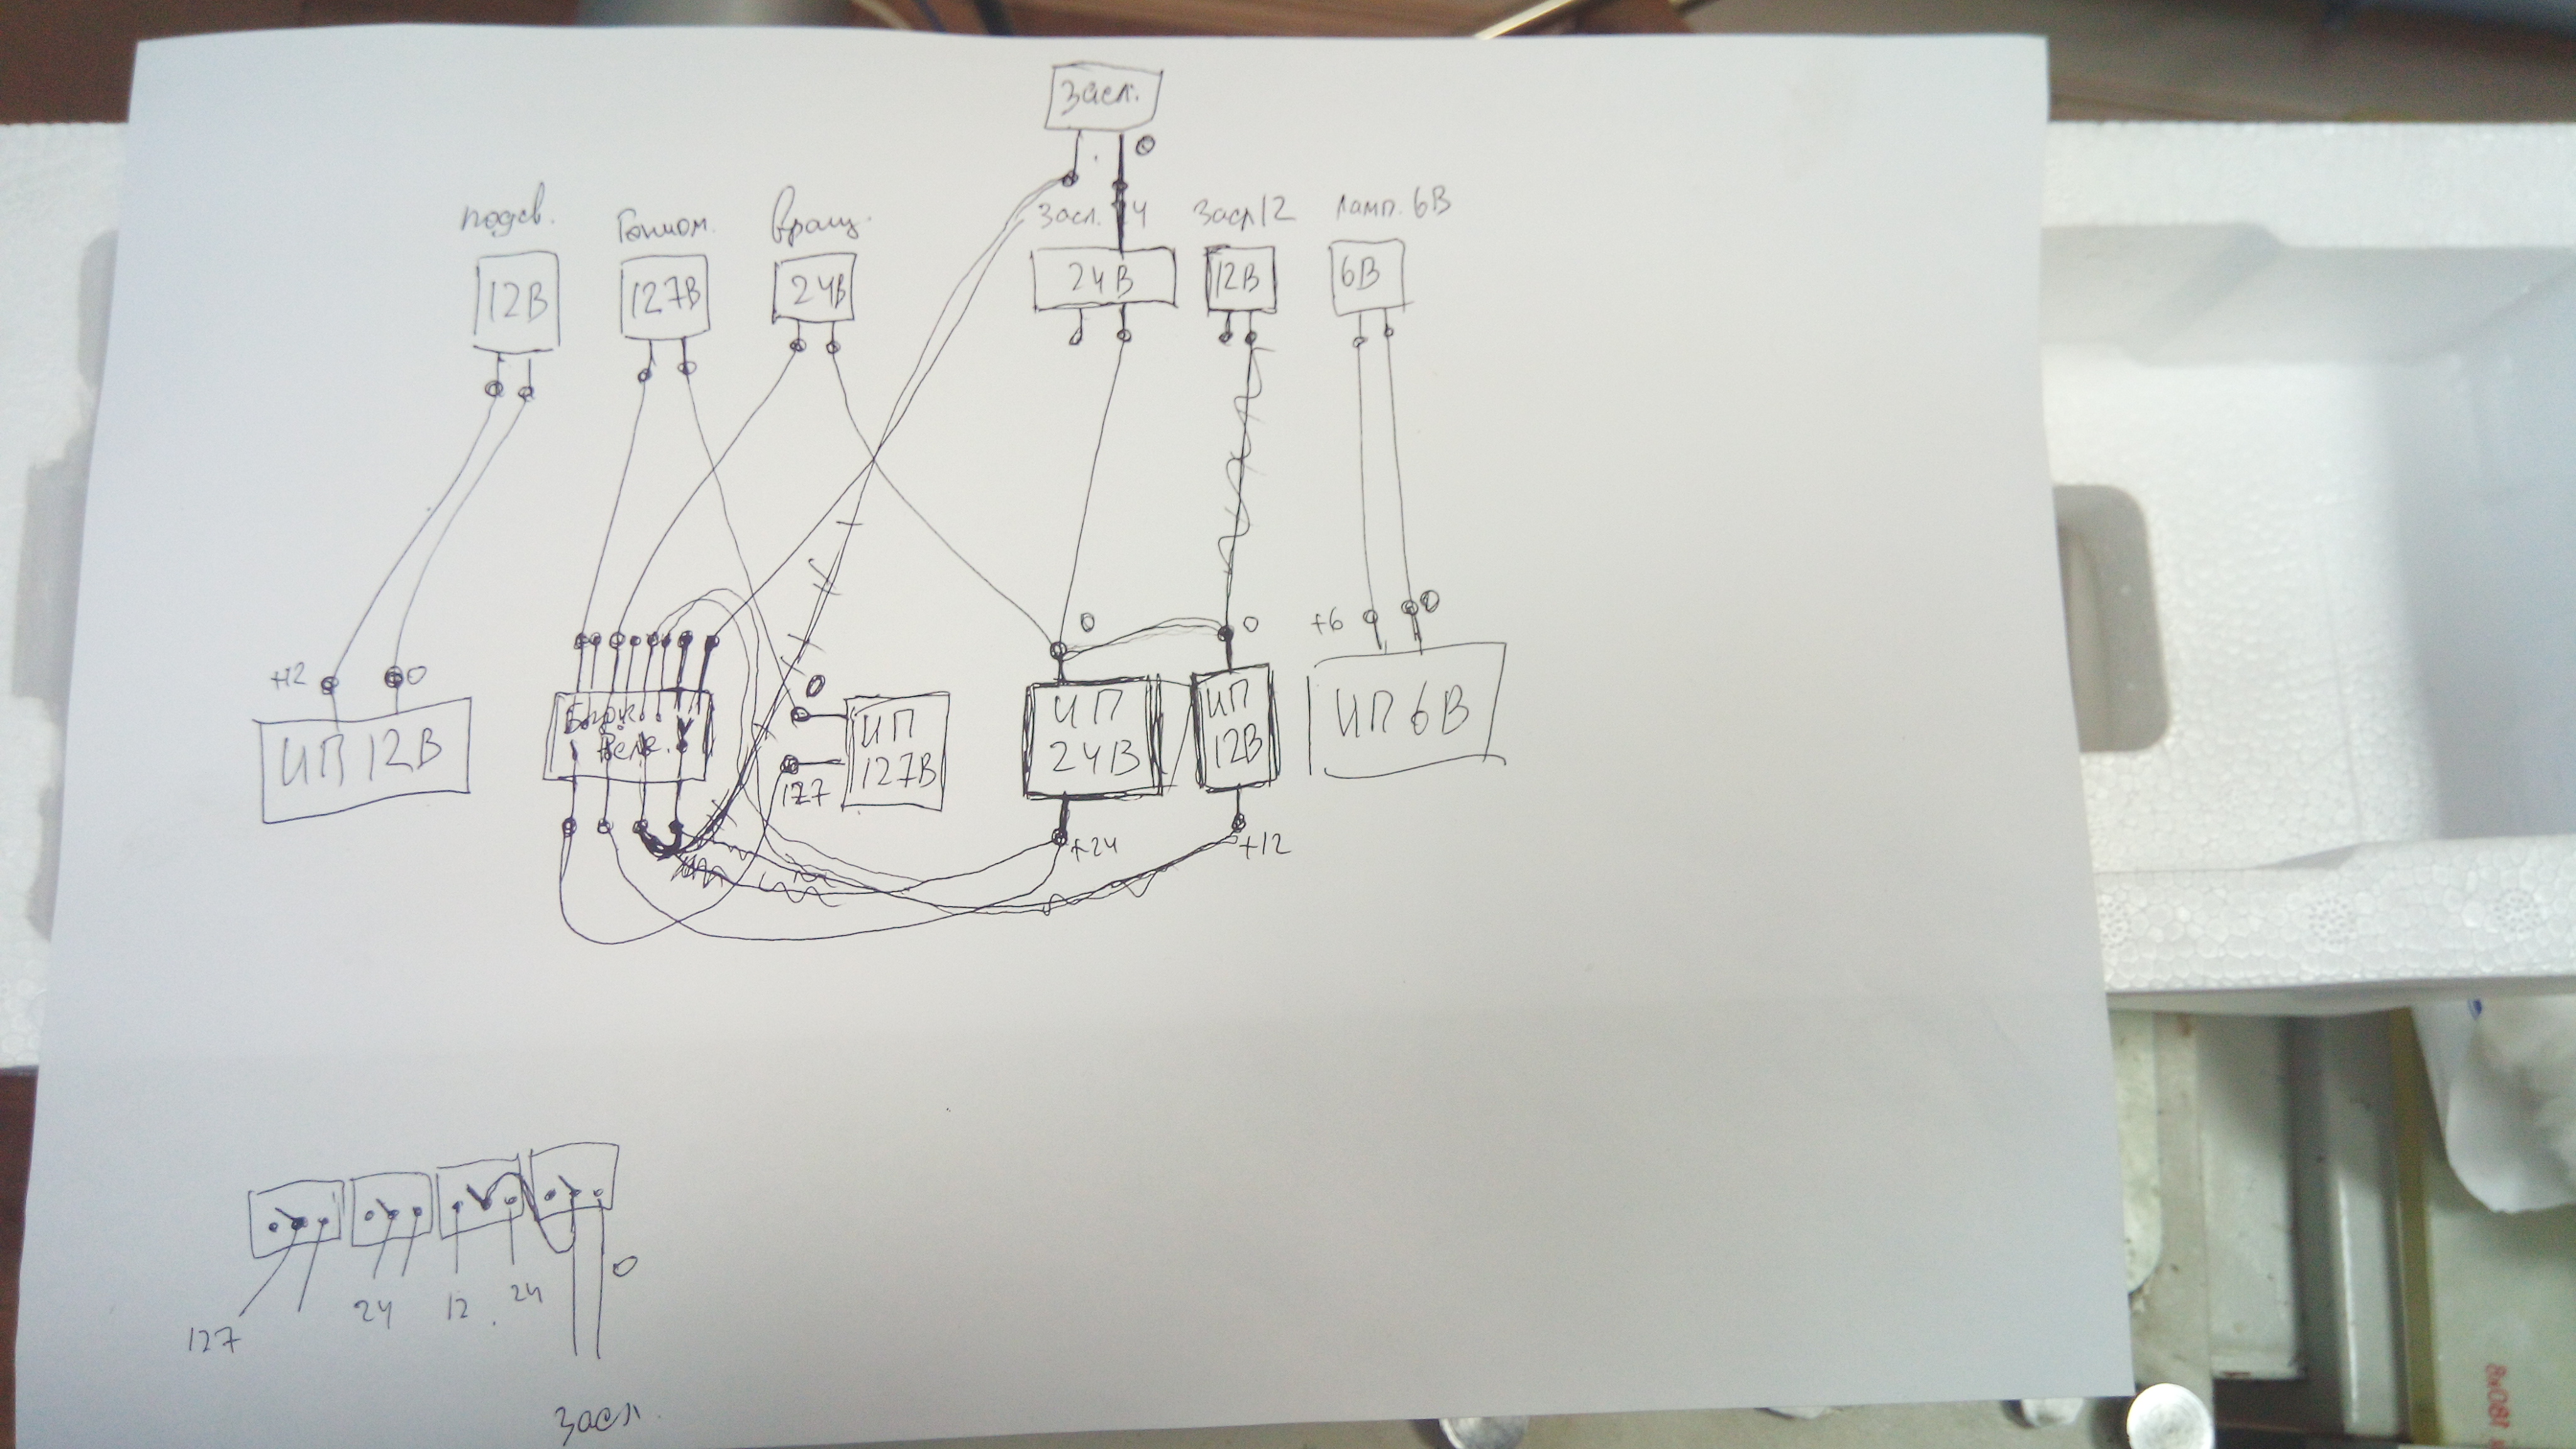 Засл.
0
подсв. Гониом. Вращ. Засл. 24 Засл12 Ламп. 6В
12В 127В 24В 24В 12В 6В
+12 0 0 0 +6 0
ИП 12В
Блок
Реле.
0
127
ИП
127В
ИП
24В
+24
ИП
12В
+12
ИП 6В
127 24 12 24 0
Засл.